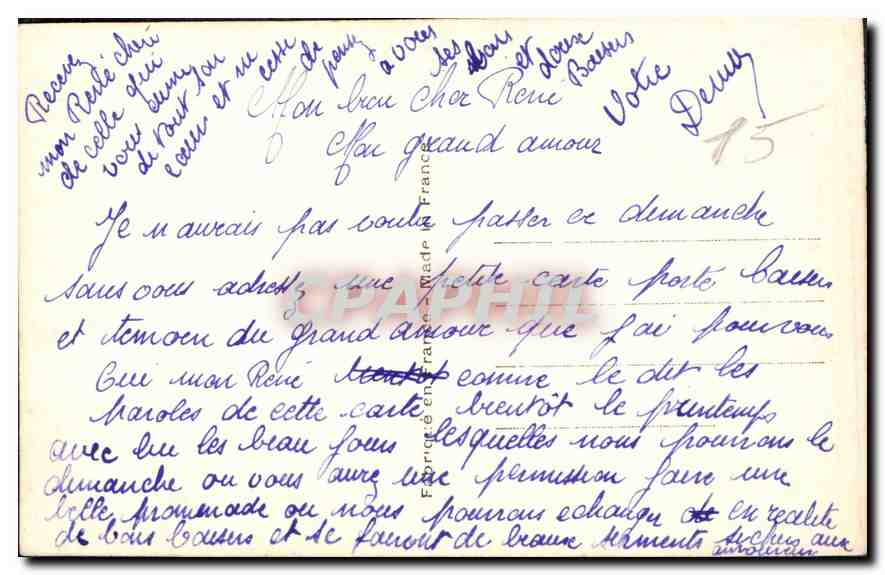 Mon bien cher René
Mon grand amour
Je n aurais pas voulu passer ce dimanche
sans vous adressez une petite carte porte baisers
et temoin du grand amour que j'ai pour vous
Oui mon René bientot comme le dit les
paroles de cette carte bientôt le printemps
avec lui les beau jours lesquelles nous pourrons le
dimanche ou vous aure une permission faire une
belle promenade ou nous pourrons echanger de en realite
de bons baisers et se feront de beaux serments
Recevez
mon René chéri
de celle qui
vous aime
de tout son
cœur et ne cesse de pensez a vous ses bons et doux
Baisers
Votre
15
Fabriqué en France - Made in France
CPAPHIL